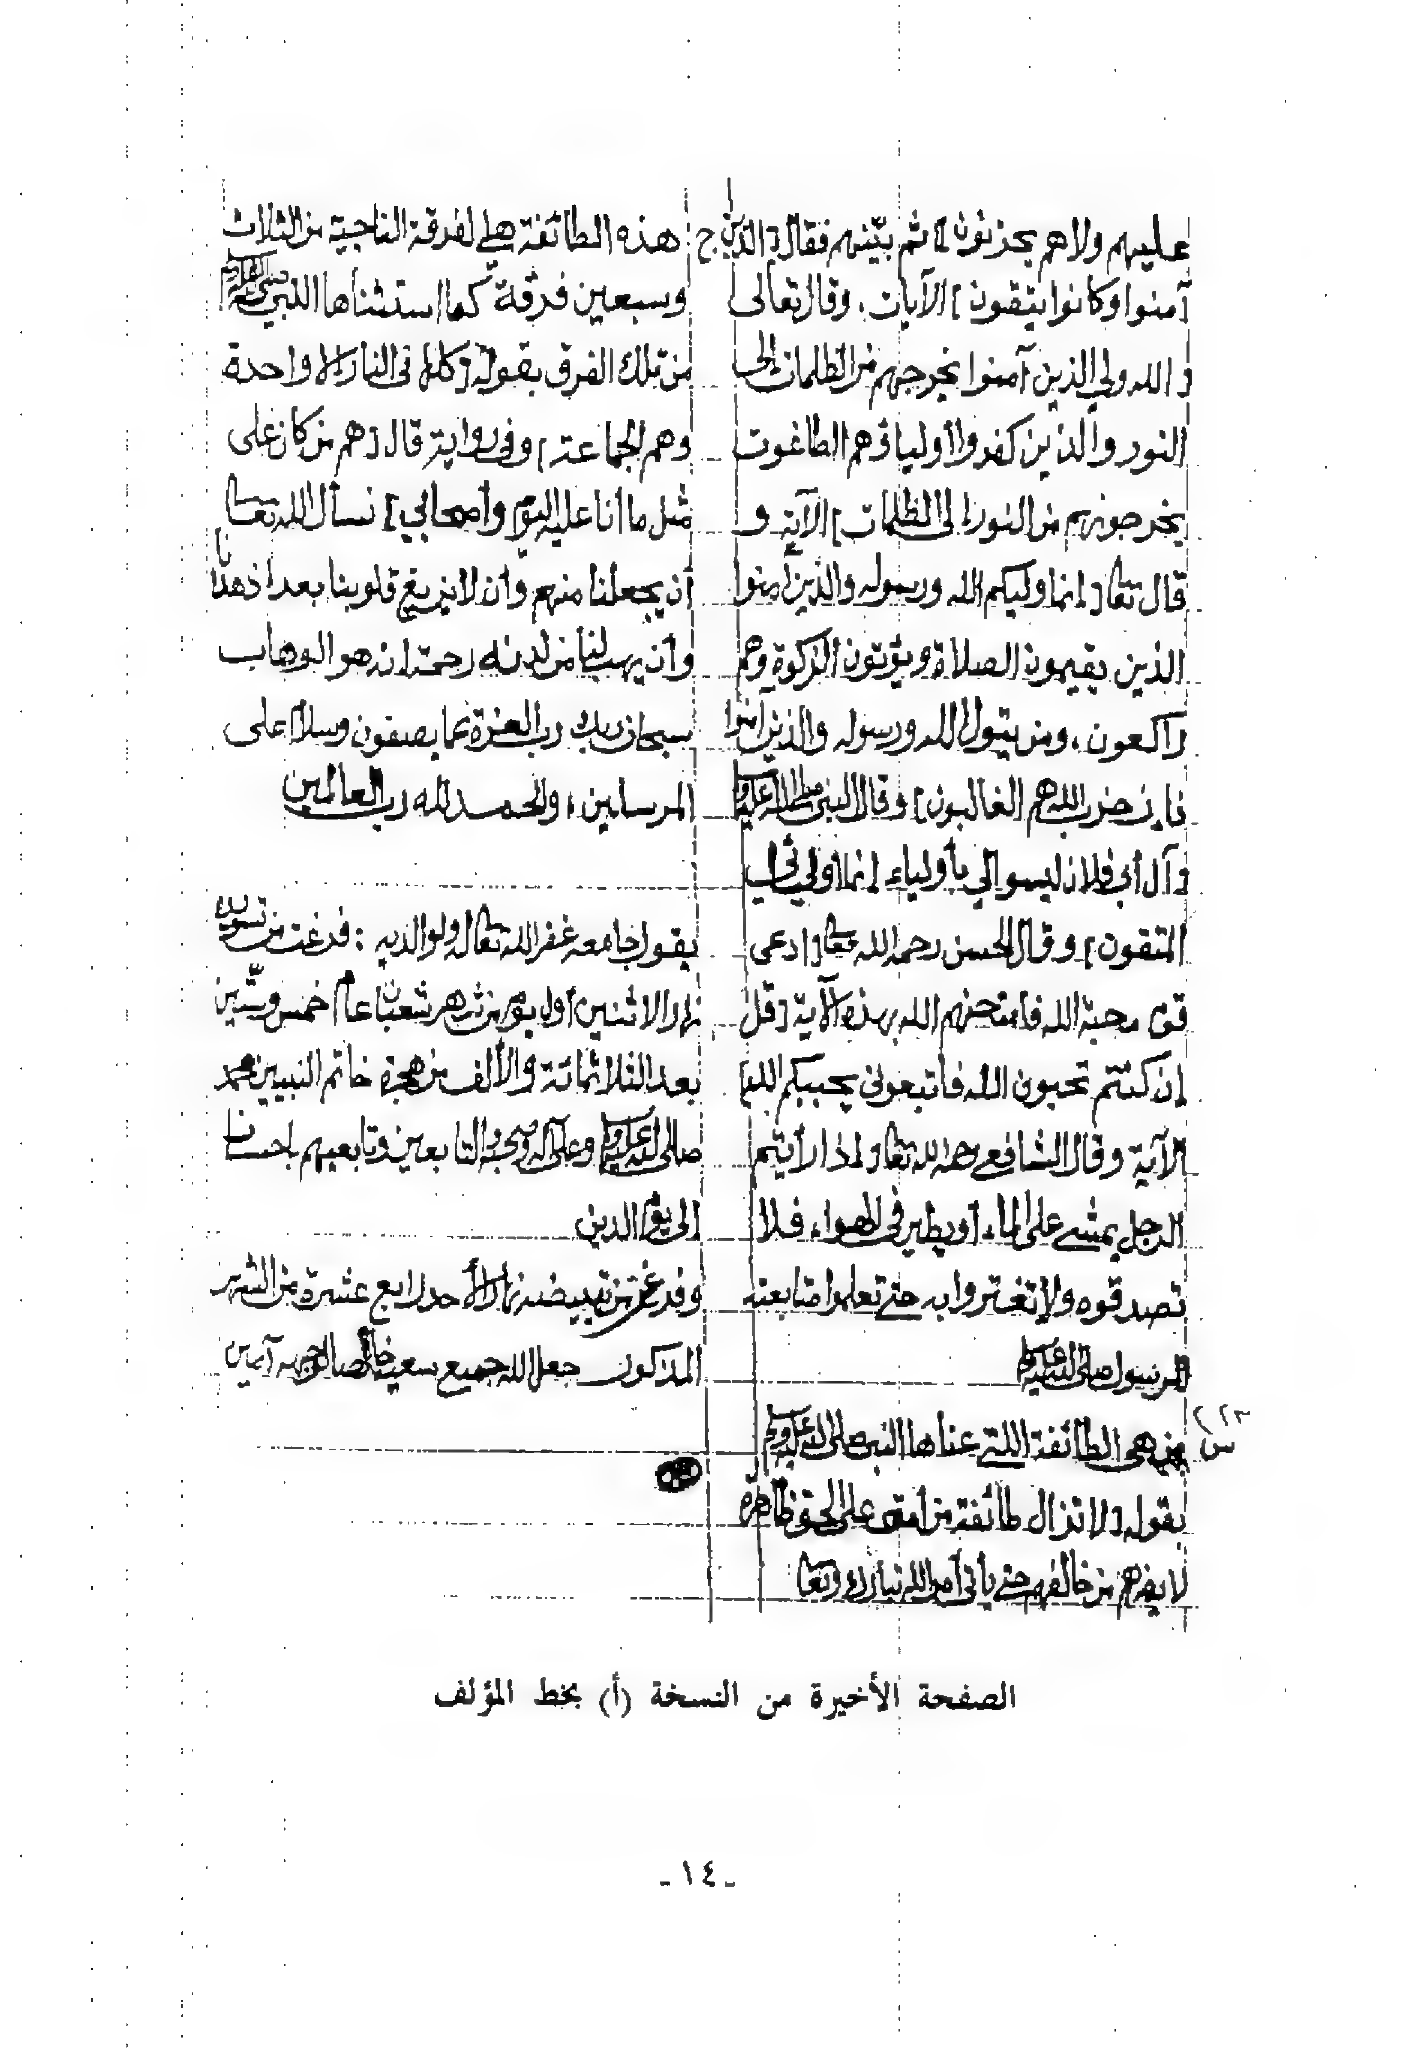 عليهم ولا هم يحزنون] ثم بيّنهم فقال [الذين
آمنوا وكانوا يتقون] الآيات، وقال تعالى
[الله ولي الذين آمنوا يخرجهم من الظلمات إلى
النور والذين كفروا أولياؤهم الطاغوت
يخرجونهم من النور إلى الظلمات] الآية و
قال تعالى [إنما وليكم الله ورسوله والذين آمنوا
الذين يقيمون الصلاة ويؤتون الزكوة وهم
راكعون، ومن يتول الله ورسوله والذين آمنوا
فإن حزب الله هم الغالبون] وقال النبي صلى الله عليه وسلم
[آل أبي فلان ليسوا لي بأولياء إنما أوليائي
المتقون] وقال الحسن رحمه الله تعالى [ادعى
قوم محبة الله فامتحنهم الله بهذه الآية [قل
إن كنتم تحبون الله فاتبعوني يحببكم الله]
الآية وقال الشافعي رحمه الله تعالى إذا رأيتم
الرجل يمشي على الماء أو يطير في الهواء فلا
تصدقوه ولا تغتروا به حتى تعلموا متابعته
للرسول صلى الله عليه وسلم
س ٢٢٢ من هي الطائفة اللتي عناها النبي صلى الله عليه وسلم
بقوله [لا تزال طائفة من أمتي على الحق ظاهرة
لا يضرهم من خالفهم حتى يأتي أمر الله تبارك وتعالى
ج هذه الطائفة هي الفرقة الناجية من الثلاث
وسبعين فرقة كما استثناها النبي صلى الله عليه وسلم
من تلك الفرق بقوله [كلها في النار إلا واحدة
وهم الجماعة] وفي رواية قال [هم من كان على
مثل ما أنا عليه اليوم وأصحابي] نسأل الله تعالى
أن يجعلنا منهم وأن لا يزيغ قلوبنا بعد إذ هدانا
وأن يهب لنا من لدنه رحمة إنه هو الوهاب
سبحان ربك رب العزة عما يصفون وسلام على
المرسلين، والحمد لله رب العالمين
يقول جامعه غفر الله تعالى له ولوالديه : فرغت من تسويده
نهار الاثنين أول يوم من شهر شعبان عام خمس وستين
بعد الثلاثمائة والألف من هجرة خاتم النبيين محمد
صلى الله عليه وسلم وعلى آله وصحبه والتابعين وتابعيهم بإحسان
إلى يوم الدين
وفرغت من تبييضه نهار الأحد رابع عشرة من الشهر
المذكور جعل الله جميع سعينا خالصا لوجهه آمين
الصفحة الأخيرة من النسخة (أ) بخط المؤلف
ـ ١٤ ـ